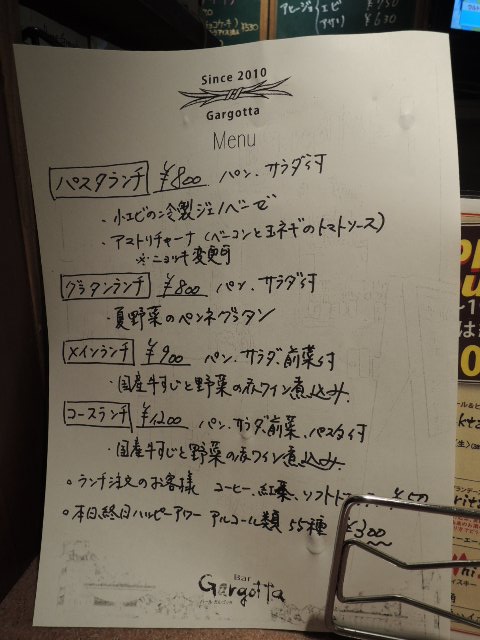 アヒージョ エビ
アサリ ¥630
Since 2010
Gargotta
Menu
パスタランチ ¥800 パン、サラダ付
・小エビの冷製ジェノベーゼ
・アストリチャーナ (ベーコンと玉ネギのトマトソース)
※ニョッキ変更可
グラタンランチ ¥800 パン、サラダ付
・夏野菜のペンネグラタン
メインランチ ¥900 パン、サラダ、前菜付
・国産牛すじと野菜の赤ワイン煮込み
コースランチ ¥1200 パン、サラダ、前菜、パスタ付
・国産牛すじと野菜の赤ワイン煮込み
○ランチ注文のお客様 コーヒー、紅茶、ソフトド ¥50
○本日、終日ハッピーアワー アルコール類 55種 ¥300
Bar
Gargotta
バール・ガルゴッタ